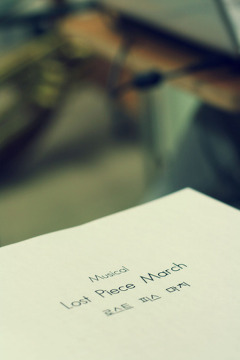 Musical
Lost Piece March
로스트 피스 마치